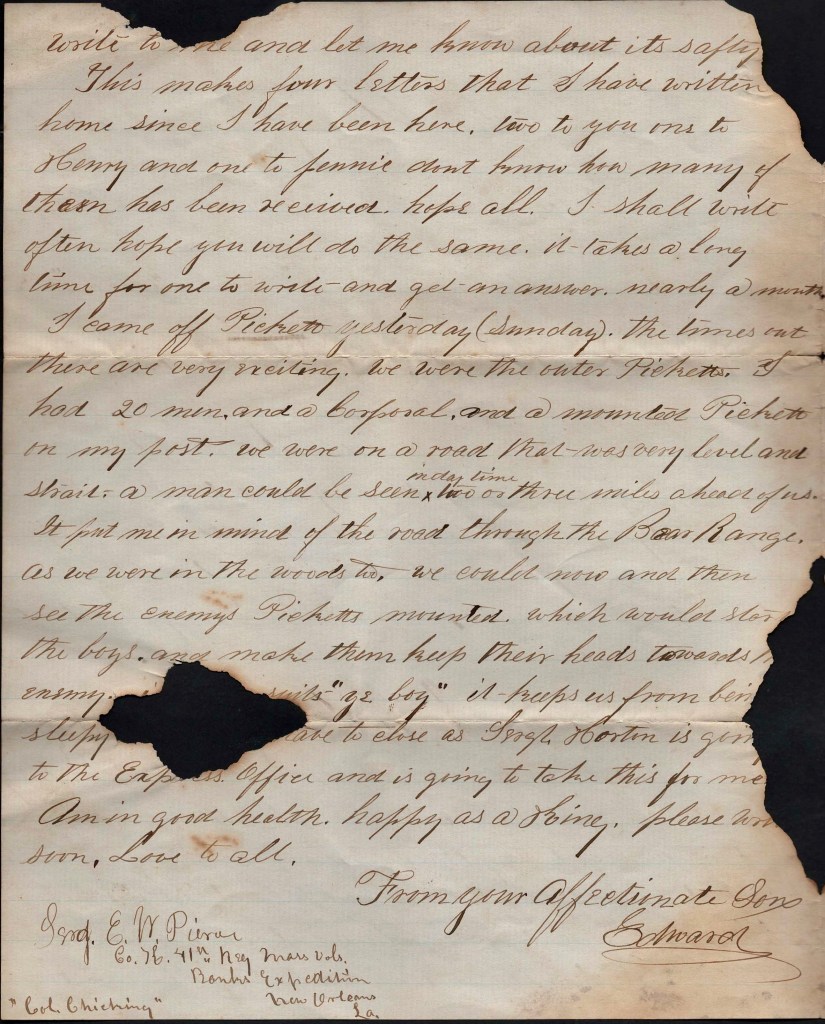 write to me and let me know about its safty
This makes four letters that I have written
home since I have been here. two to you one to
Henry and one to Jennie dont know how many of
them has been received. hope all. I shall write
often hope you will do the same. it takes a long
time for one to write and get an answer. nearly a month.
I came off Pickett yesterday (Sunday). the times out
there are very exciting. we were the outer Picketts. I
had 20 men, and a Corporal, and a mounted Pickett
on my post. we were on a road that was very level and
strait. a man could be seen x two or three miles ahead of us.
in day time
It put me in mind of the road through the Bear Range.
as we were in the woods to. we could now and then
see the enemys Picketts mounted. which would
the boys. and make them keep their heads towards
enemy. suits "ye boy" it keeps us from
sleepy to close as Sergt. Horton is
to the Express Office and is going to take this for me
Am in good health. happy as a King. please
soon. Love to all.
From your Affectionate Son
Edward
Serg. E. W. Pierce
Co. H. 41st Reg Mass Vols.
Banks Expedition
New Orleans
La.
"Col. Chicking"